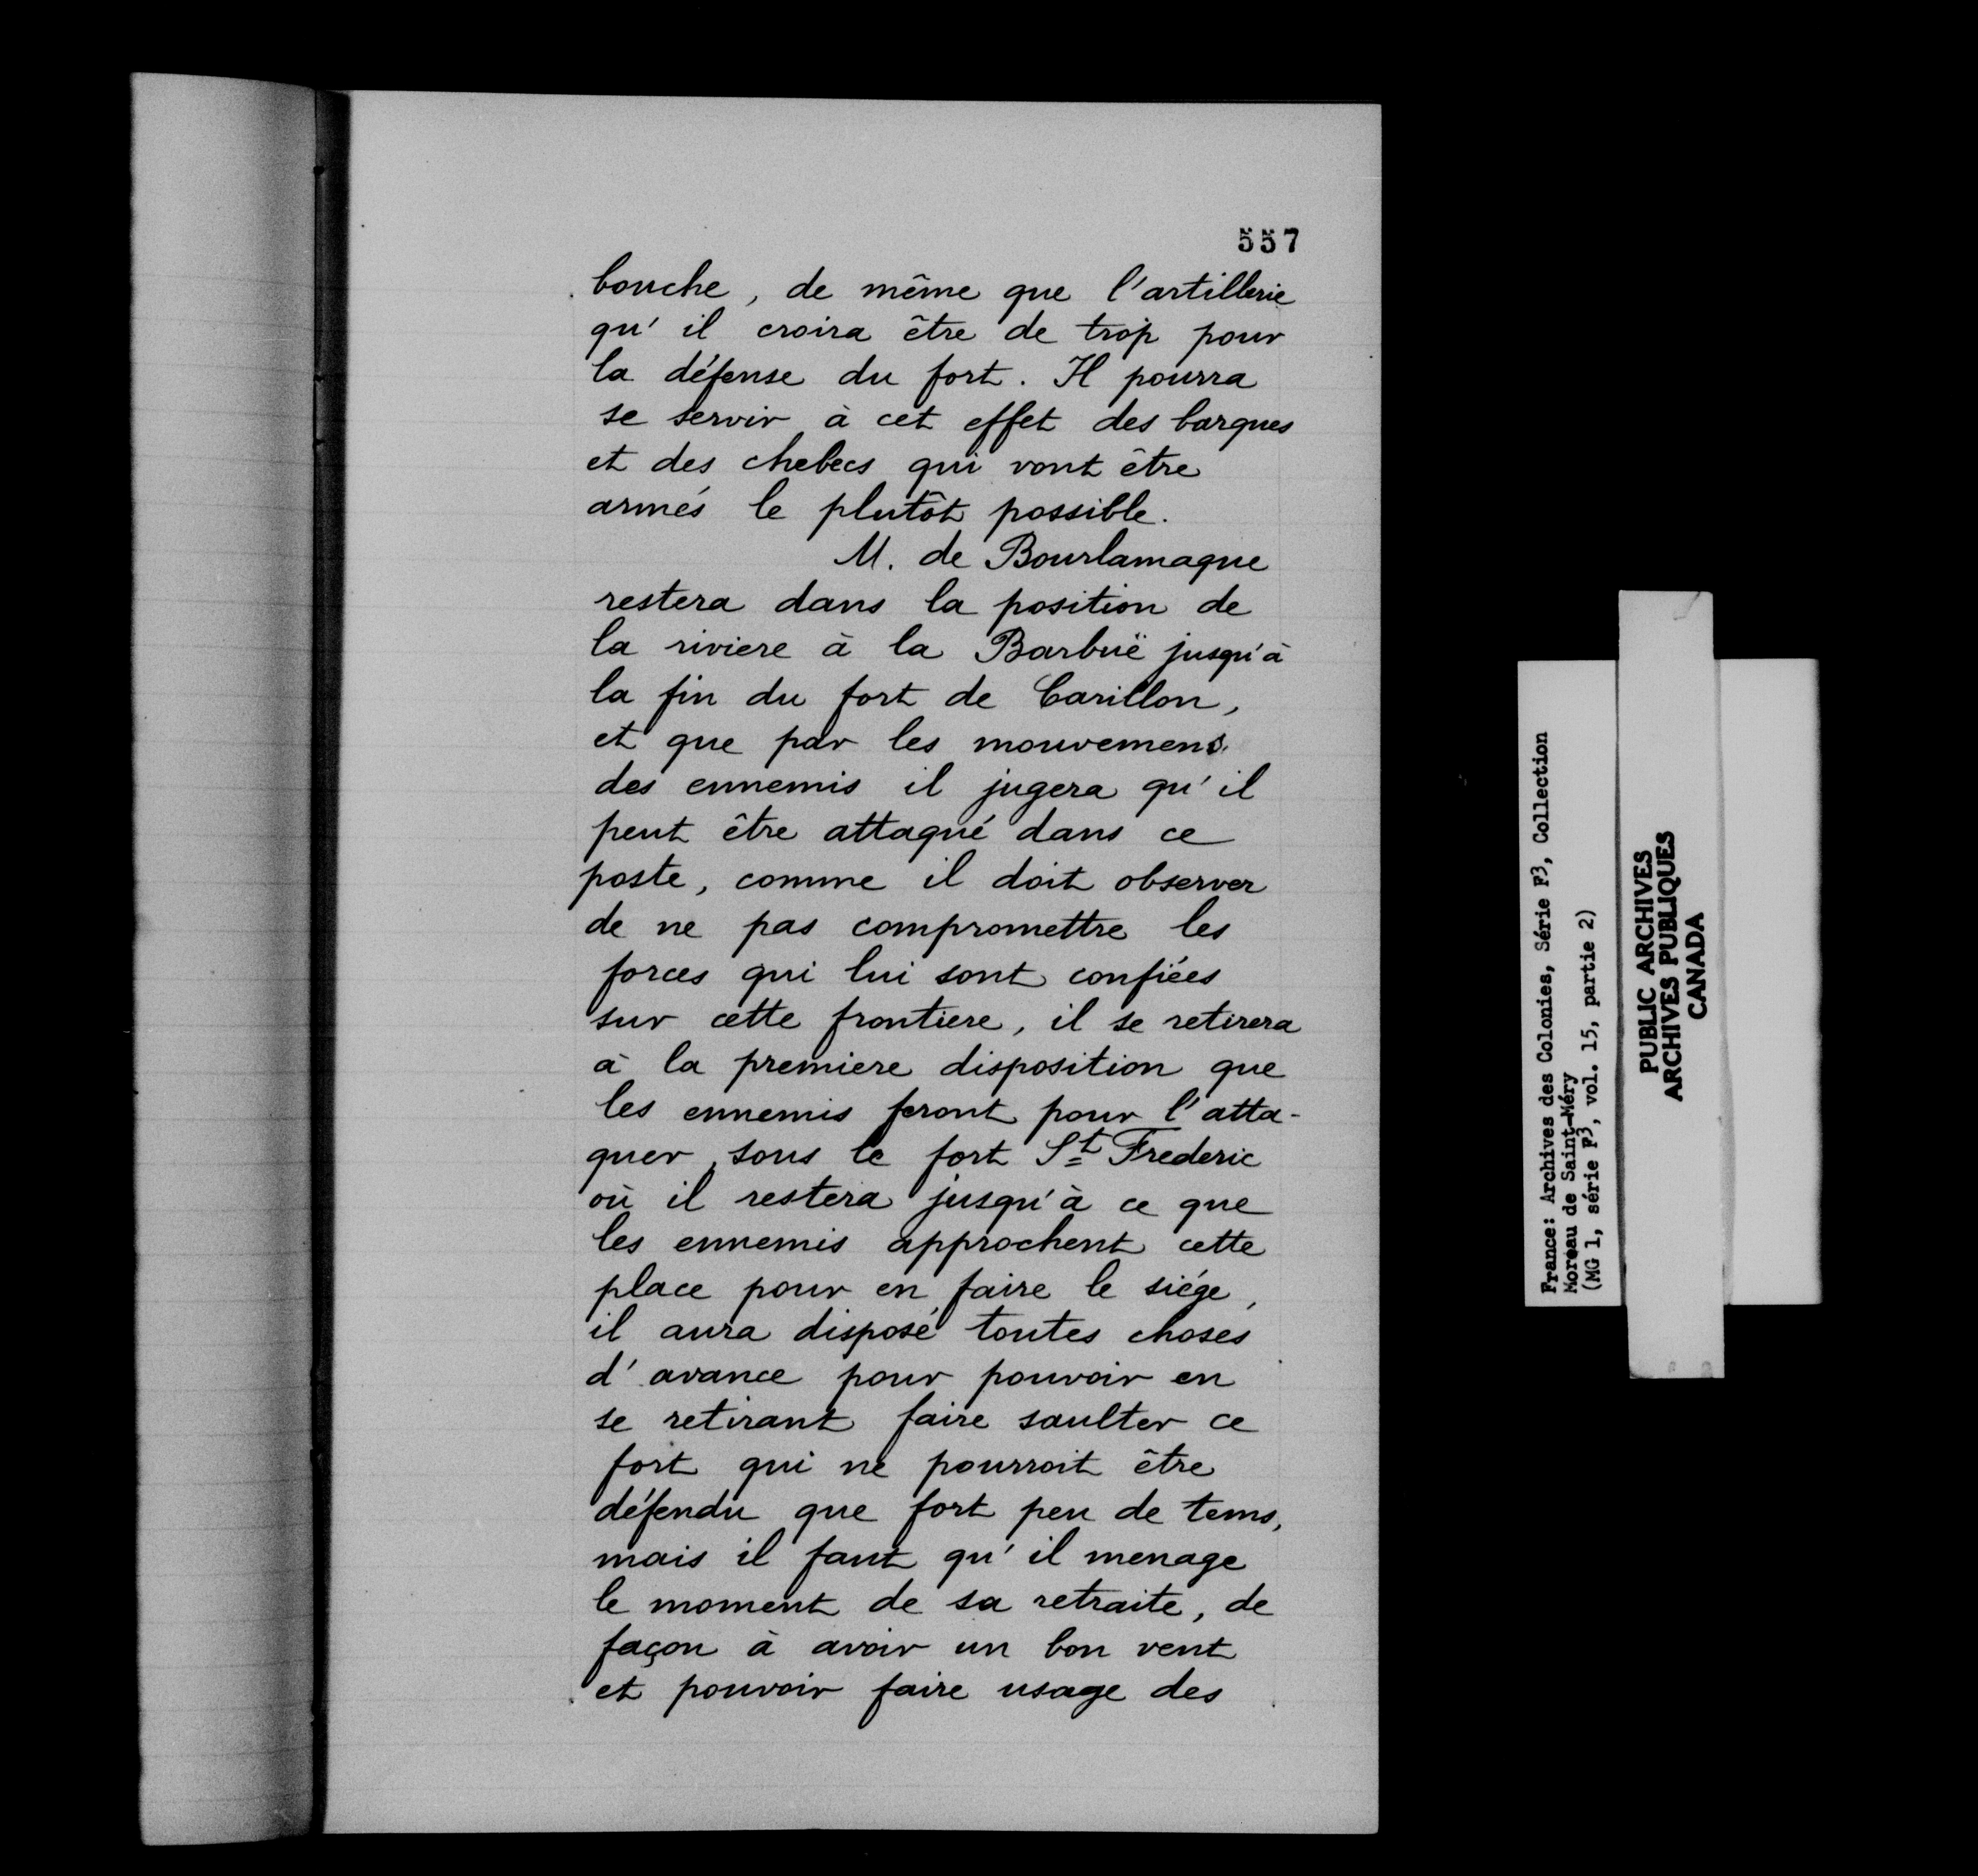 557
bouche, de même que l'artillerie
qu'il croira être de trop pour
la défense du fort. Il pourra
se servir à cet effet des barques
et des chebecs qui vont être
armés le plutôt possible.
M. de Bourlamaque
restera dans la position de
la riviere à la Barbuë jusqu'à
la fin du fort de Carillon,
et que par les mouvemens
des ennemis il jugera qu'il
peut être attaqué dans ce
poste, comme il doit observer
de ne pas compromettre les
forces qui lui sont confiées
sur cette frontiere, il se retirera
à la premiere disposition que
les ennemis feront pour l'atta-
quer, sous le fort St Frederic
où il restera jusqu'à ce que
les ennemis approchent cette
place pour en faire le siége,
il aura disposé toutes choses
d'avance pour pouvoir en
se retirant faire saulter ce
fort qui ne pourroit être
défendu que fort peu de tems,
mais il faut qu'il menage
le moment de sa retraite, de
façon à avoir un bon vent
et pouvoir faire usage des
France: Archives des Colonies, Série F3, Collection
Moreau de Saint-Méry
(MG 1, série F3, vol. 15, partie 2)
PUBLIC ARCHIVES
ARCHIVES PUBLIQUES
CANADA